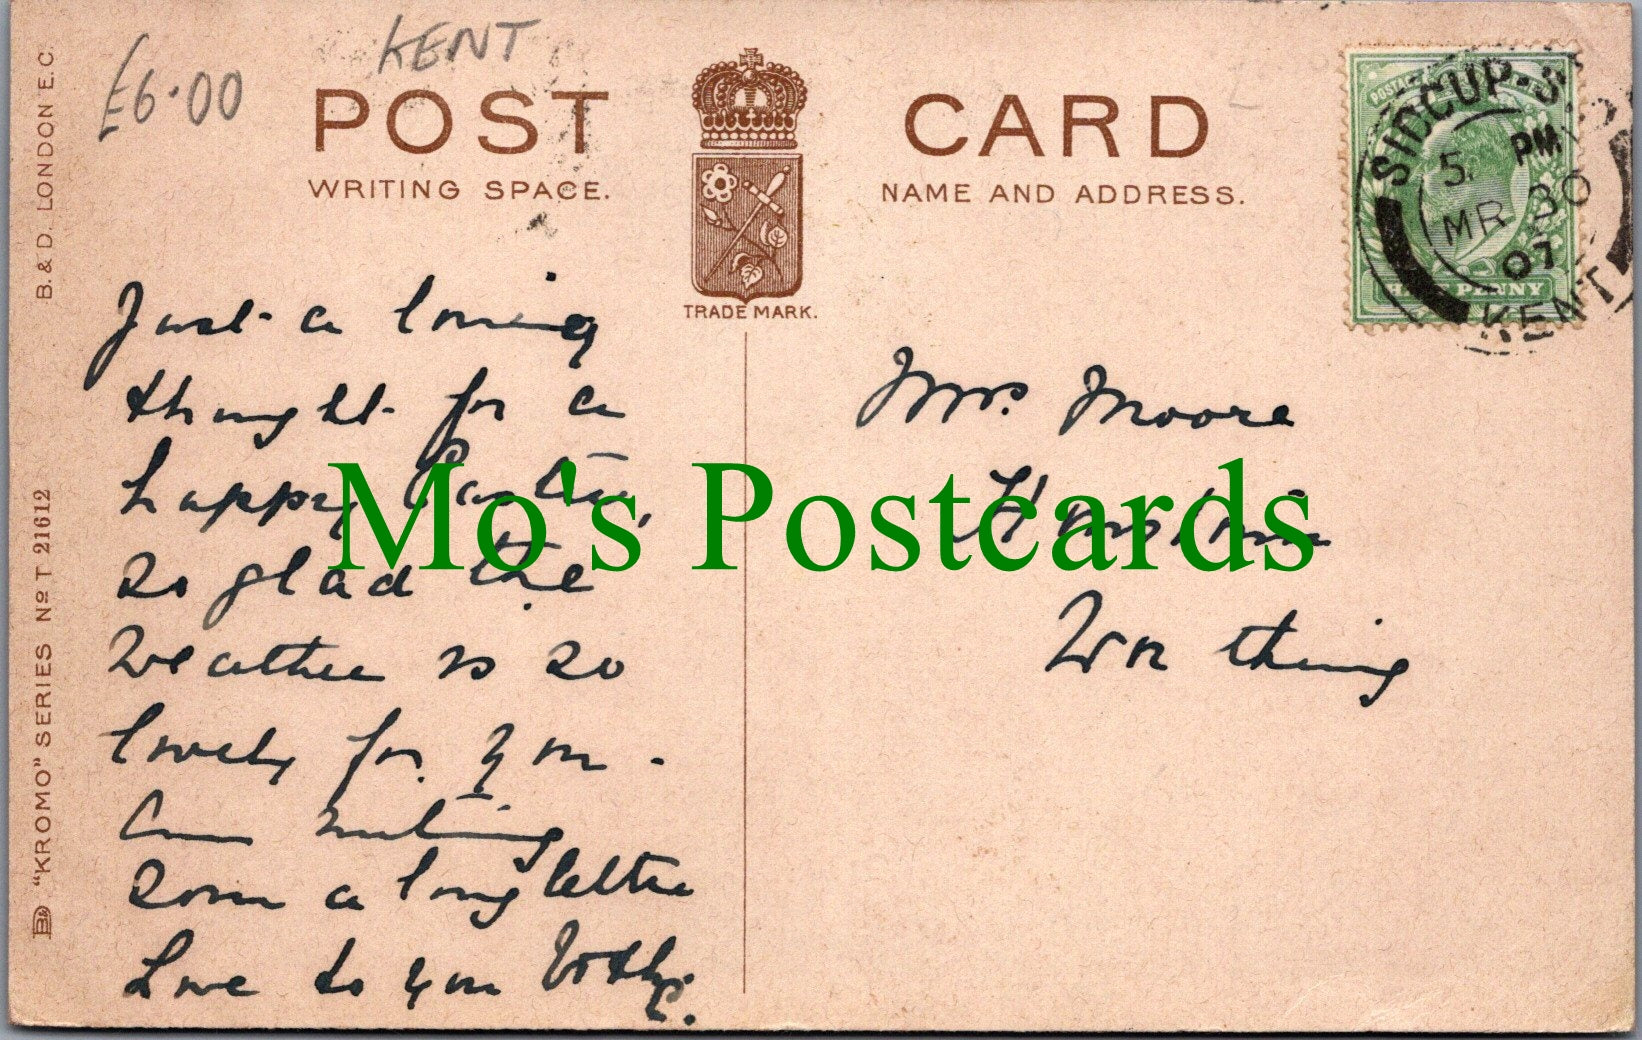 £6.00
KENT
POST CARD
WRITING SPACE.
NAME AND ADDRESS.
TRADE MARK.
B. & D. LONDON E.C.
"KROMO" SERIES Nº T 21612
B&D
SIDCUP-S.O
5. PM
MR 30
07
KENT
POSTAGE
HALF PENNY
Just a loving
thought for a
happy Easter,
so glad the
weather is so
lovely for you -
Am writing
soon a long letter
Love to you both.
Mrs. Moore
Worthing
Mo's Postcards